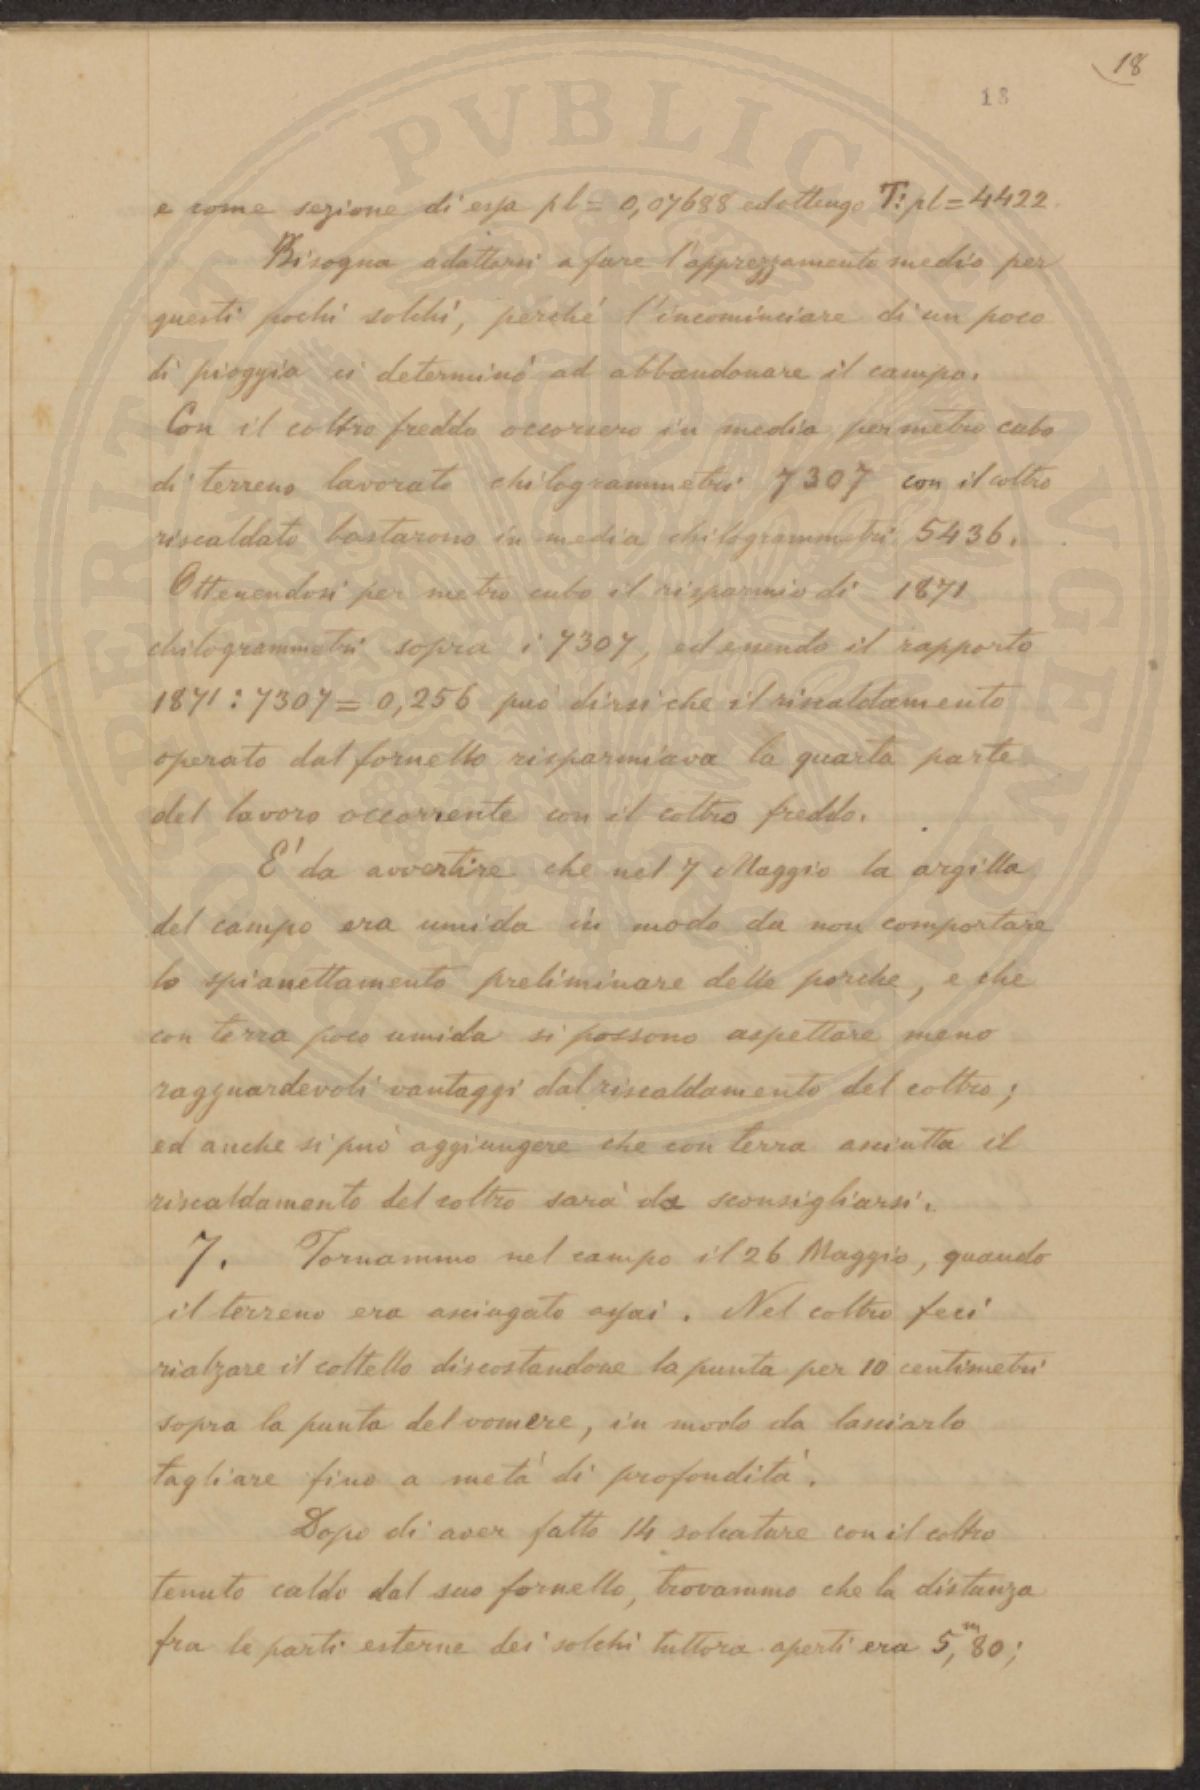 18
18
e come sezione di essa pl = 0,07688 ed ottengo T:pl = 4422.
Bisogna adattarsi a fare l'apprezzamento medio per
questi pochi solchi, perché l'incominciare di un poco
di pioggia ci determinò ad abbandonare il campo.
Con il coltro freddo occorsero in media per metro cubo
di terreno lavorato chilogrammetri 7307 con il coltro
riscaldato bastarono in media chilogrammetri 5436.
Ottenendosi per metro cubo il risparmio di 1871
chilogrammetri sopra i 7307, ed essendo il rapporto
1871 : 7307 = 0,256 può dirsi che il riscaldamento
operato dal fornello risparmiava la quarta parte
del lavoro occorrente con il coltro freddo.
E' da avvertire che nel 7 Maggio la argilla
del campo era umida in modo da non comportare
lo spianettamento preliminare delle porche, e che
con terra poco umida si possono aspettare meno
ragguardevoli vantaggi dal riscaldamento del coltro;
ed anche si può aggiungere che con terra asciutta il
riscaldamento del coltro sarà da sconsigliarsi.
7. Tornammo nel campo il 26 Maggio, quando
il terreno era asciugato assai. Nel coltro feci
rialzare il coltello discostandone la punta per 10 centimetri
sopra la punta del vomere, in modo da lasciarlo
tagliare fino a metà di profondità.
Dopo di aver fatto 14 solcature con il coltro
tenuto caldo dal suo fornello, trovammo che la distanza
fra le parti esterne dei solchi tuttora aperti era 5,m80;